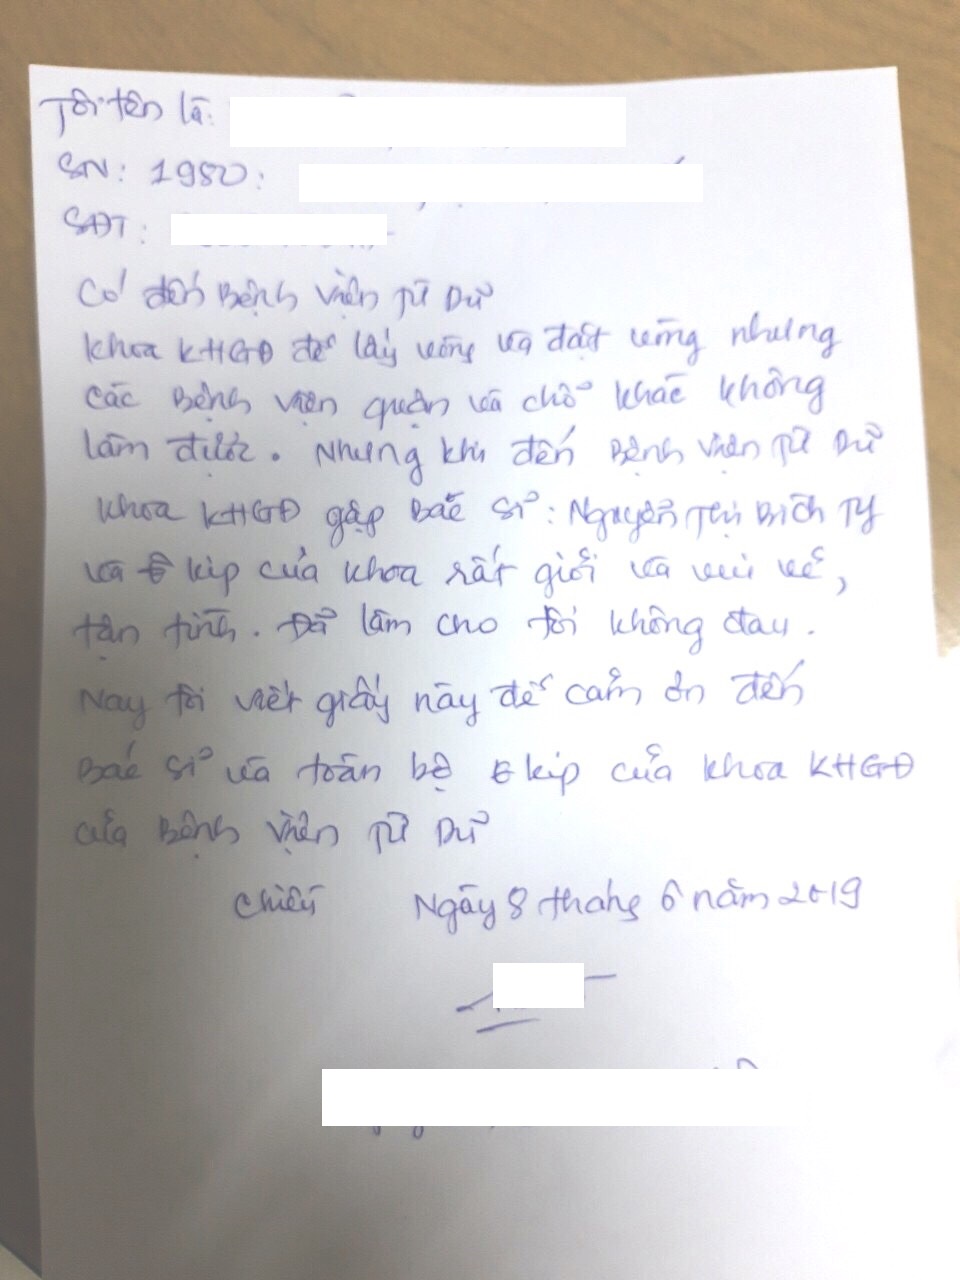 Tôi tên là:
SN: 1980:
SĐT:
Có đến Bệnh Viện Từ Dũ
Khoa KHGĐ để lấy vòng và đặt vòng nhưng
các Bệnh viện quận và chổ khác không
làm được. Nhưng khi đến Bệnh Viện Từ Dũ
Khoa KHGĐ gặp Bác sĩ: Nguyễn Thị Bích Ty
và ê kíp của khoa rất giỏi và vui vẻ,
tận tình. Đã làm cho tôi không đau.
Nay tôi viết giấy này để cảm ơn đến
Bác sĩ và toàn bộ ê kíp của khoa KHGĐ
của Bệnh Viện Từ Dũ
Chiều Ngày 8 tháng 6 năm 2019